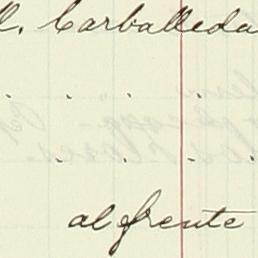 ll. Carballeda
al frente